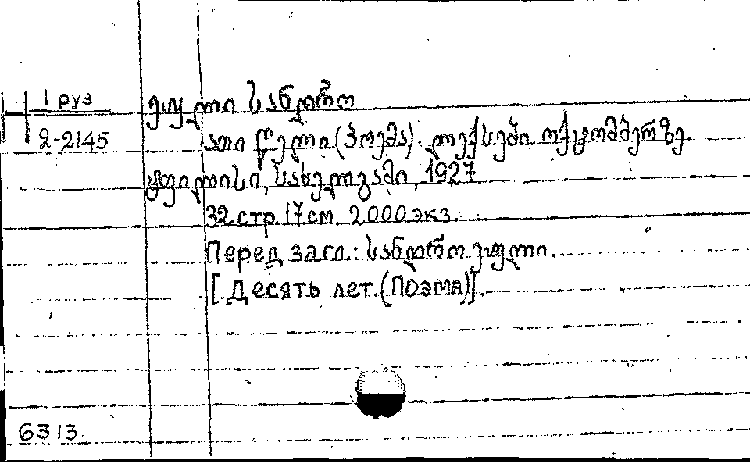 1 руз
2-2145
ეული სანდრო
ათი წელი (პოემა). ლექსები ოქტომბერზე.
ტფილისი, სახელგამი, 1927
32 стр. 17 см. 2000 экз.
Перед загл.: სანდრო ეული.
[Десять лет. (Поэма)].
6313.